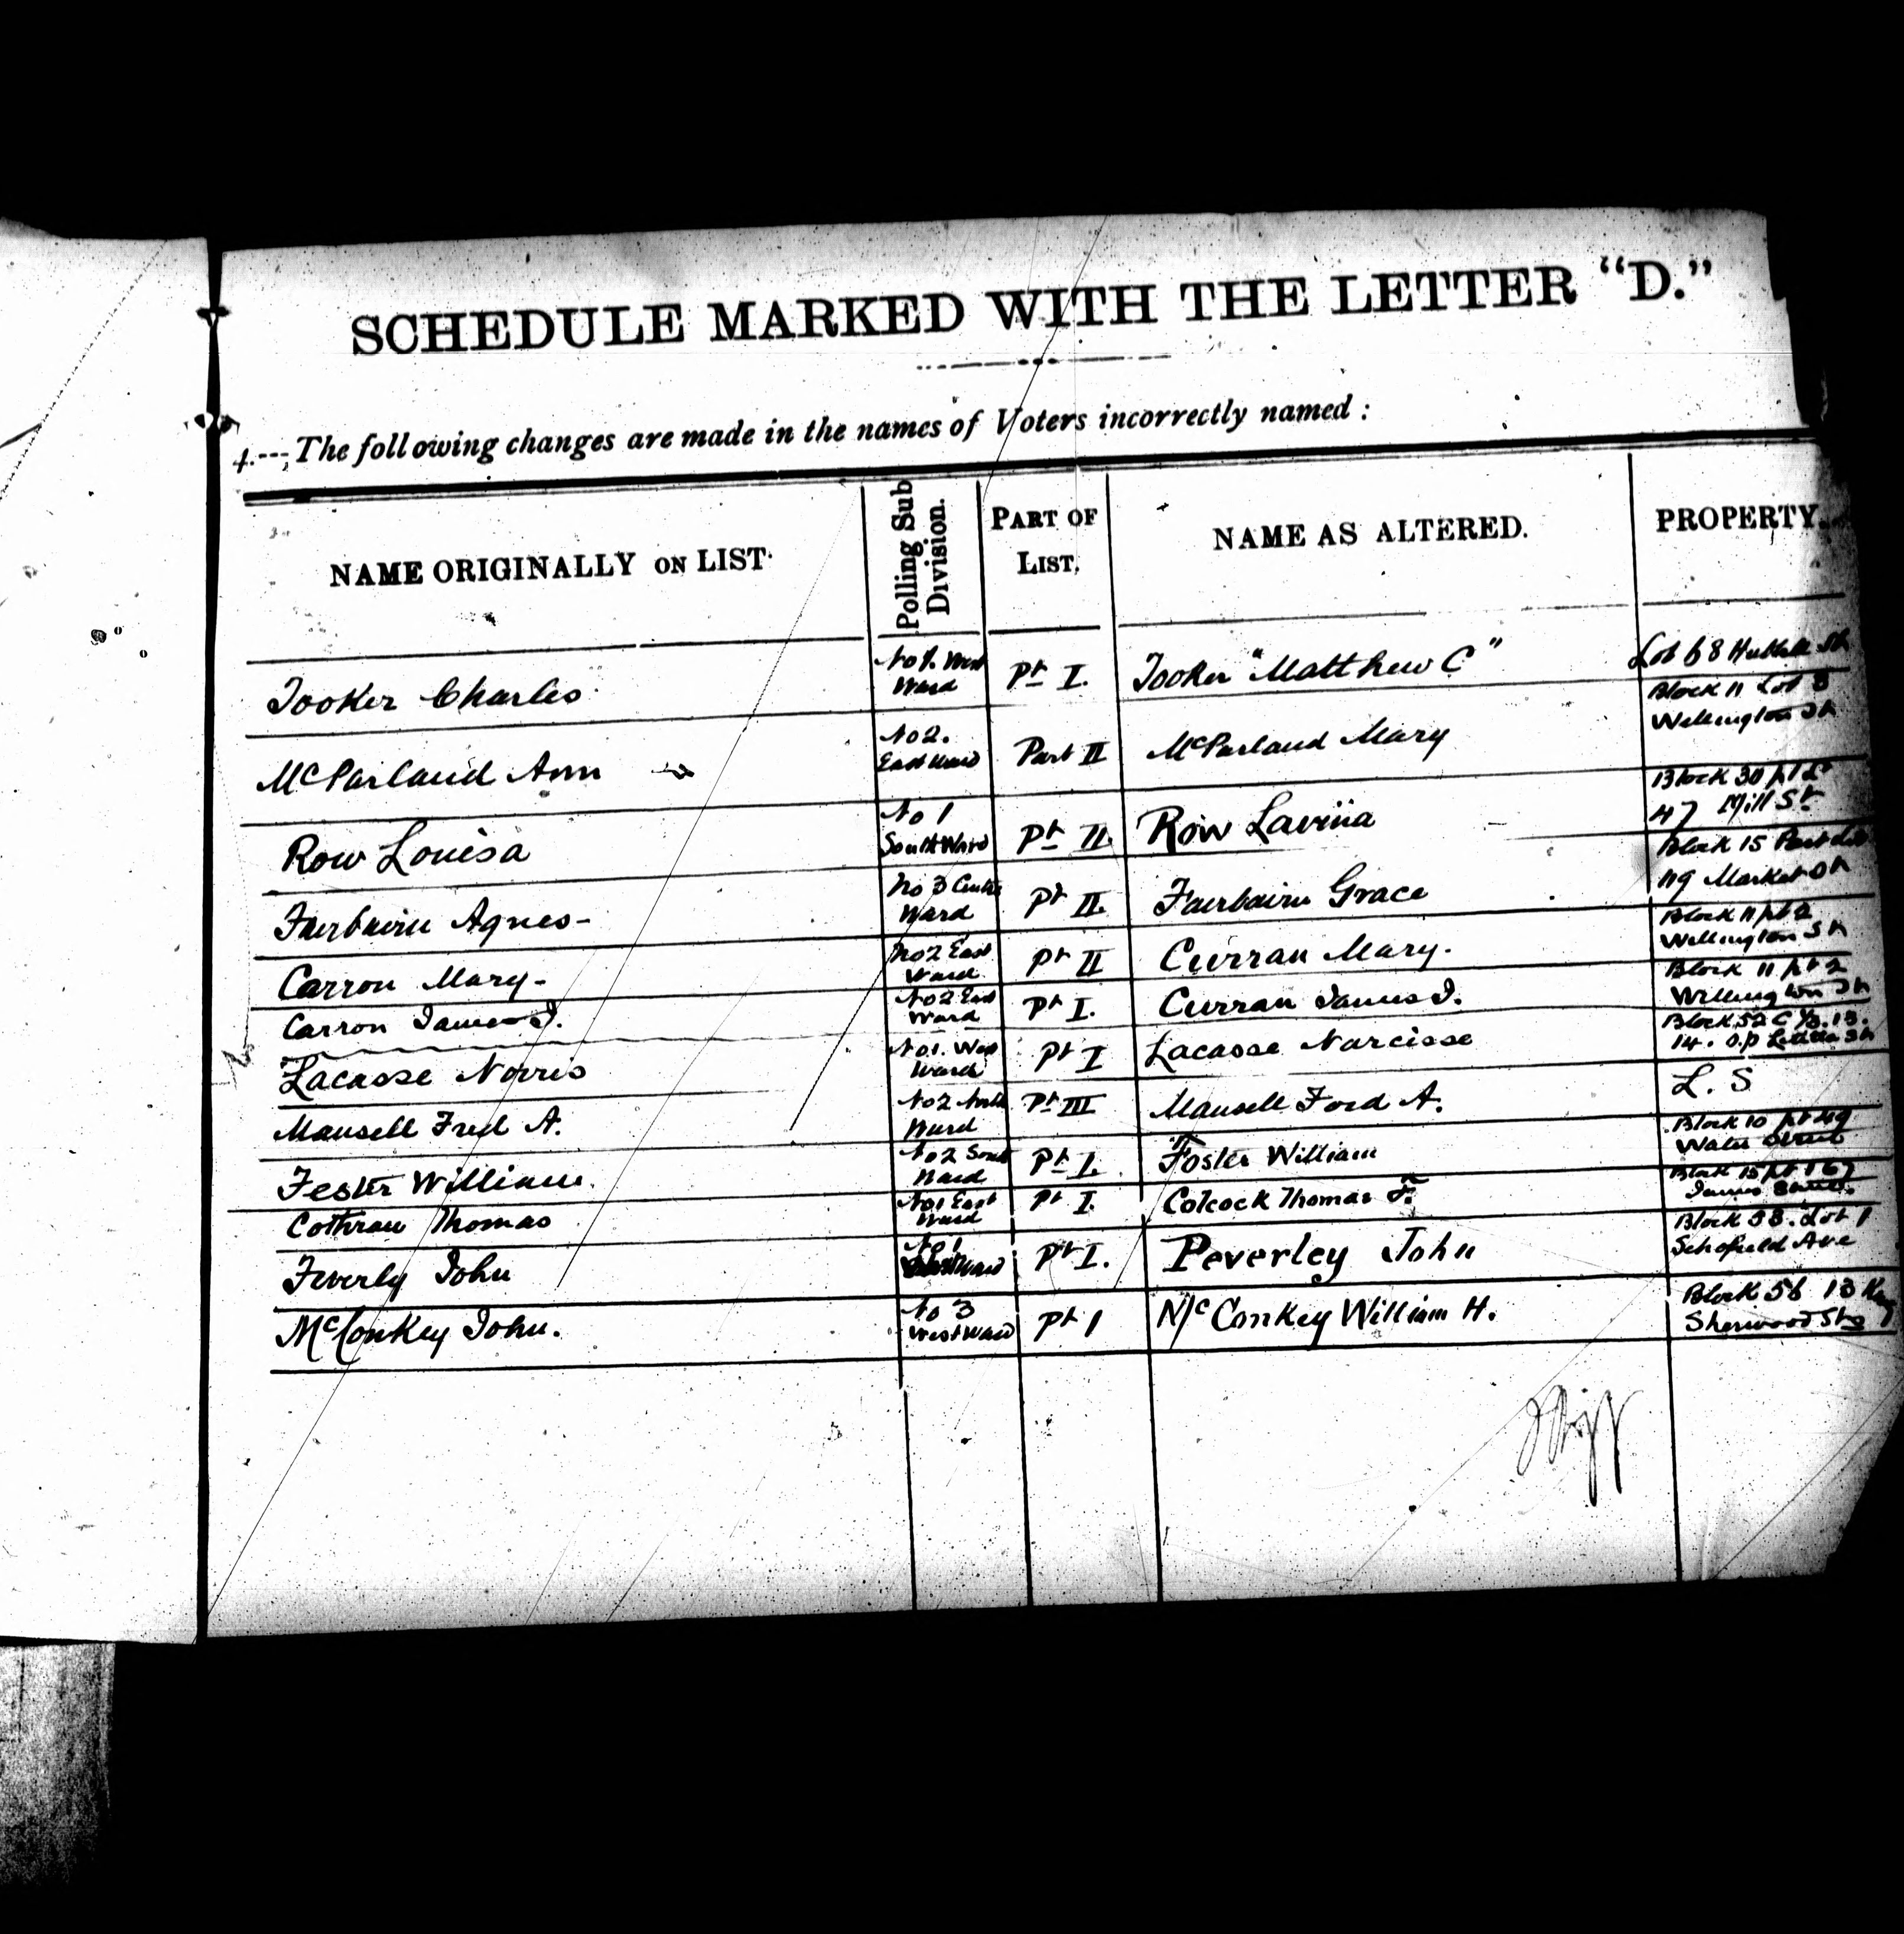 SCHEDULE MARKED WITH THE LETTER "D."
4.---The following changes are made in the names of Voters incorrectly named :
NAME ORIGINALLY ON LIST Polling Sub Division. PART OF LIST. NAME AS ALTERED. PROPERTY.
Tooker Charles No 1. West Ward Pt I. Tooker "Matthew C" Lot 68 Hubbell St
McParland Ann No 2. East Ward Part II McParland Mary Block 11 Lot 3 Wellington St
Row Louisa No 1 South Ward Pt II. Row Lavinia Block 30 pt Lt 47 Mill St
Fairbairn Agnes - No 3 Centre Ward Pt II. Fairbairn Grace Block 15 Part Lot 119 Market St
Carron Mary - No 2 East Ward Pt II Curran Mary. Block 11 pt 2 Wellington St
Carron James J. No 2 East Ward Pt I. Curran James J. Block 11 pt 2 Wellington St
Lacasse Norris No 1. West Ward Pt I Lacasse Narcisse Block 52 C 1/2 . 13. 14.
Mansell Fred A. No 2 North Ward Pt III Mansell Ford A. L. S
Fester William. No 2 South Ward Pt I. Foster William Block 10 pt 49 Water Street
Cothran Thomas No 1 East Ward Pt I. Colcock Thomas F. Block 15 pt 167 James Street
Feverly John No 1 Ward Pt I. Peverley John Block 38. Lot 1 Schofield Ave
McConkey John. No 3 West Ward Pt 1 McConkey William H. Block 56 13 Sherwood Sts